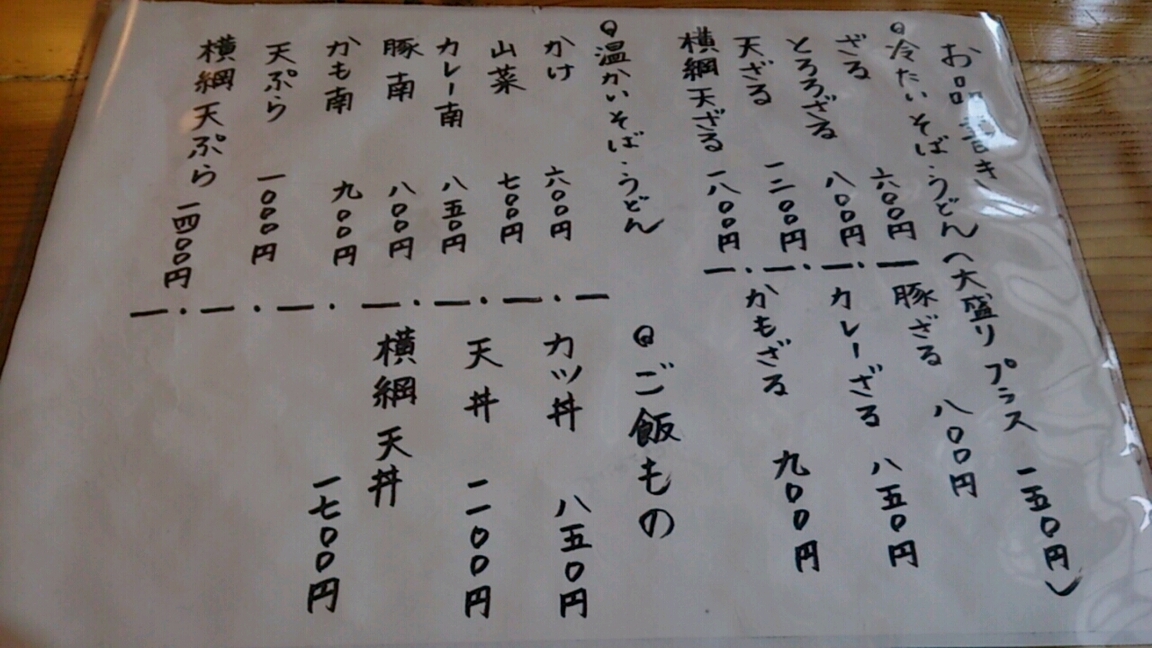 お品書き
冷たいそば・うどん(大盛りプラス 一五〇円)
ざる 六〇〇円
とろろざる 八〇〇円
天ざる 一二〇〇円
横綱天ざる 一八〇〇円
豚ざる 八〇〇円
カレーざる 八五〇円
かもざる 九〇〇円
温かいそば・うどん
かけ 六〇〇円
山菜 七〇〇円
カレー南 八五〇円
豚南 八〇〇円
かも南 九〇〇円
天ぷら 一〇〇〇円
横綱天ぷら 一四〇〇円
ご飯もの
カツ丼 八五〇円
天丼 一一〇〇円
横綱天丼
一七〇〇円